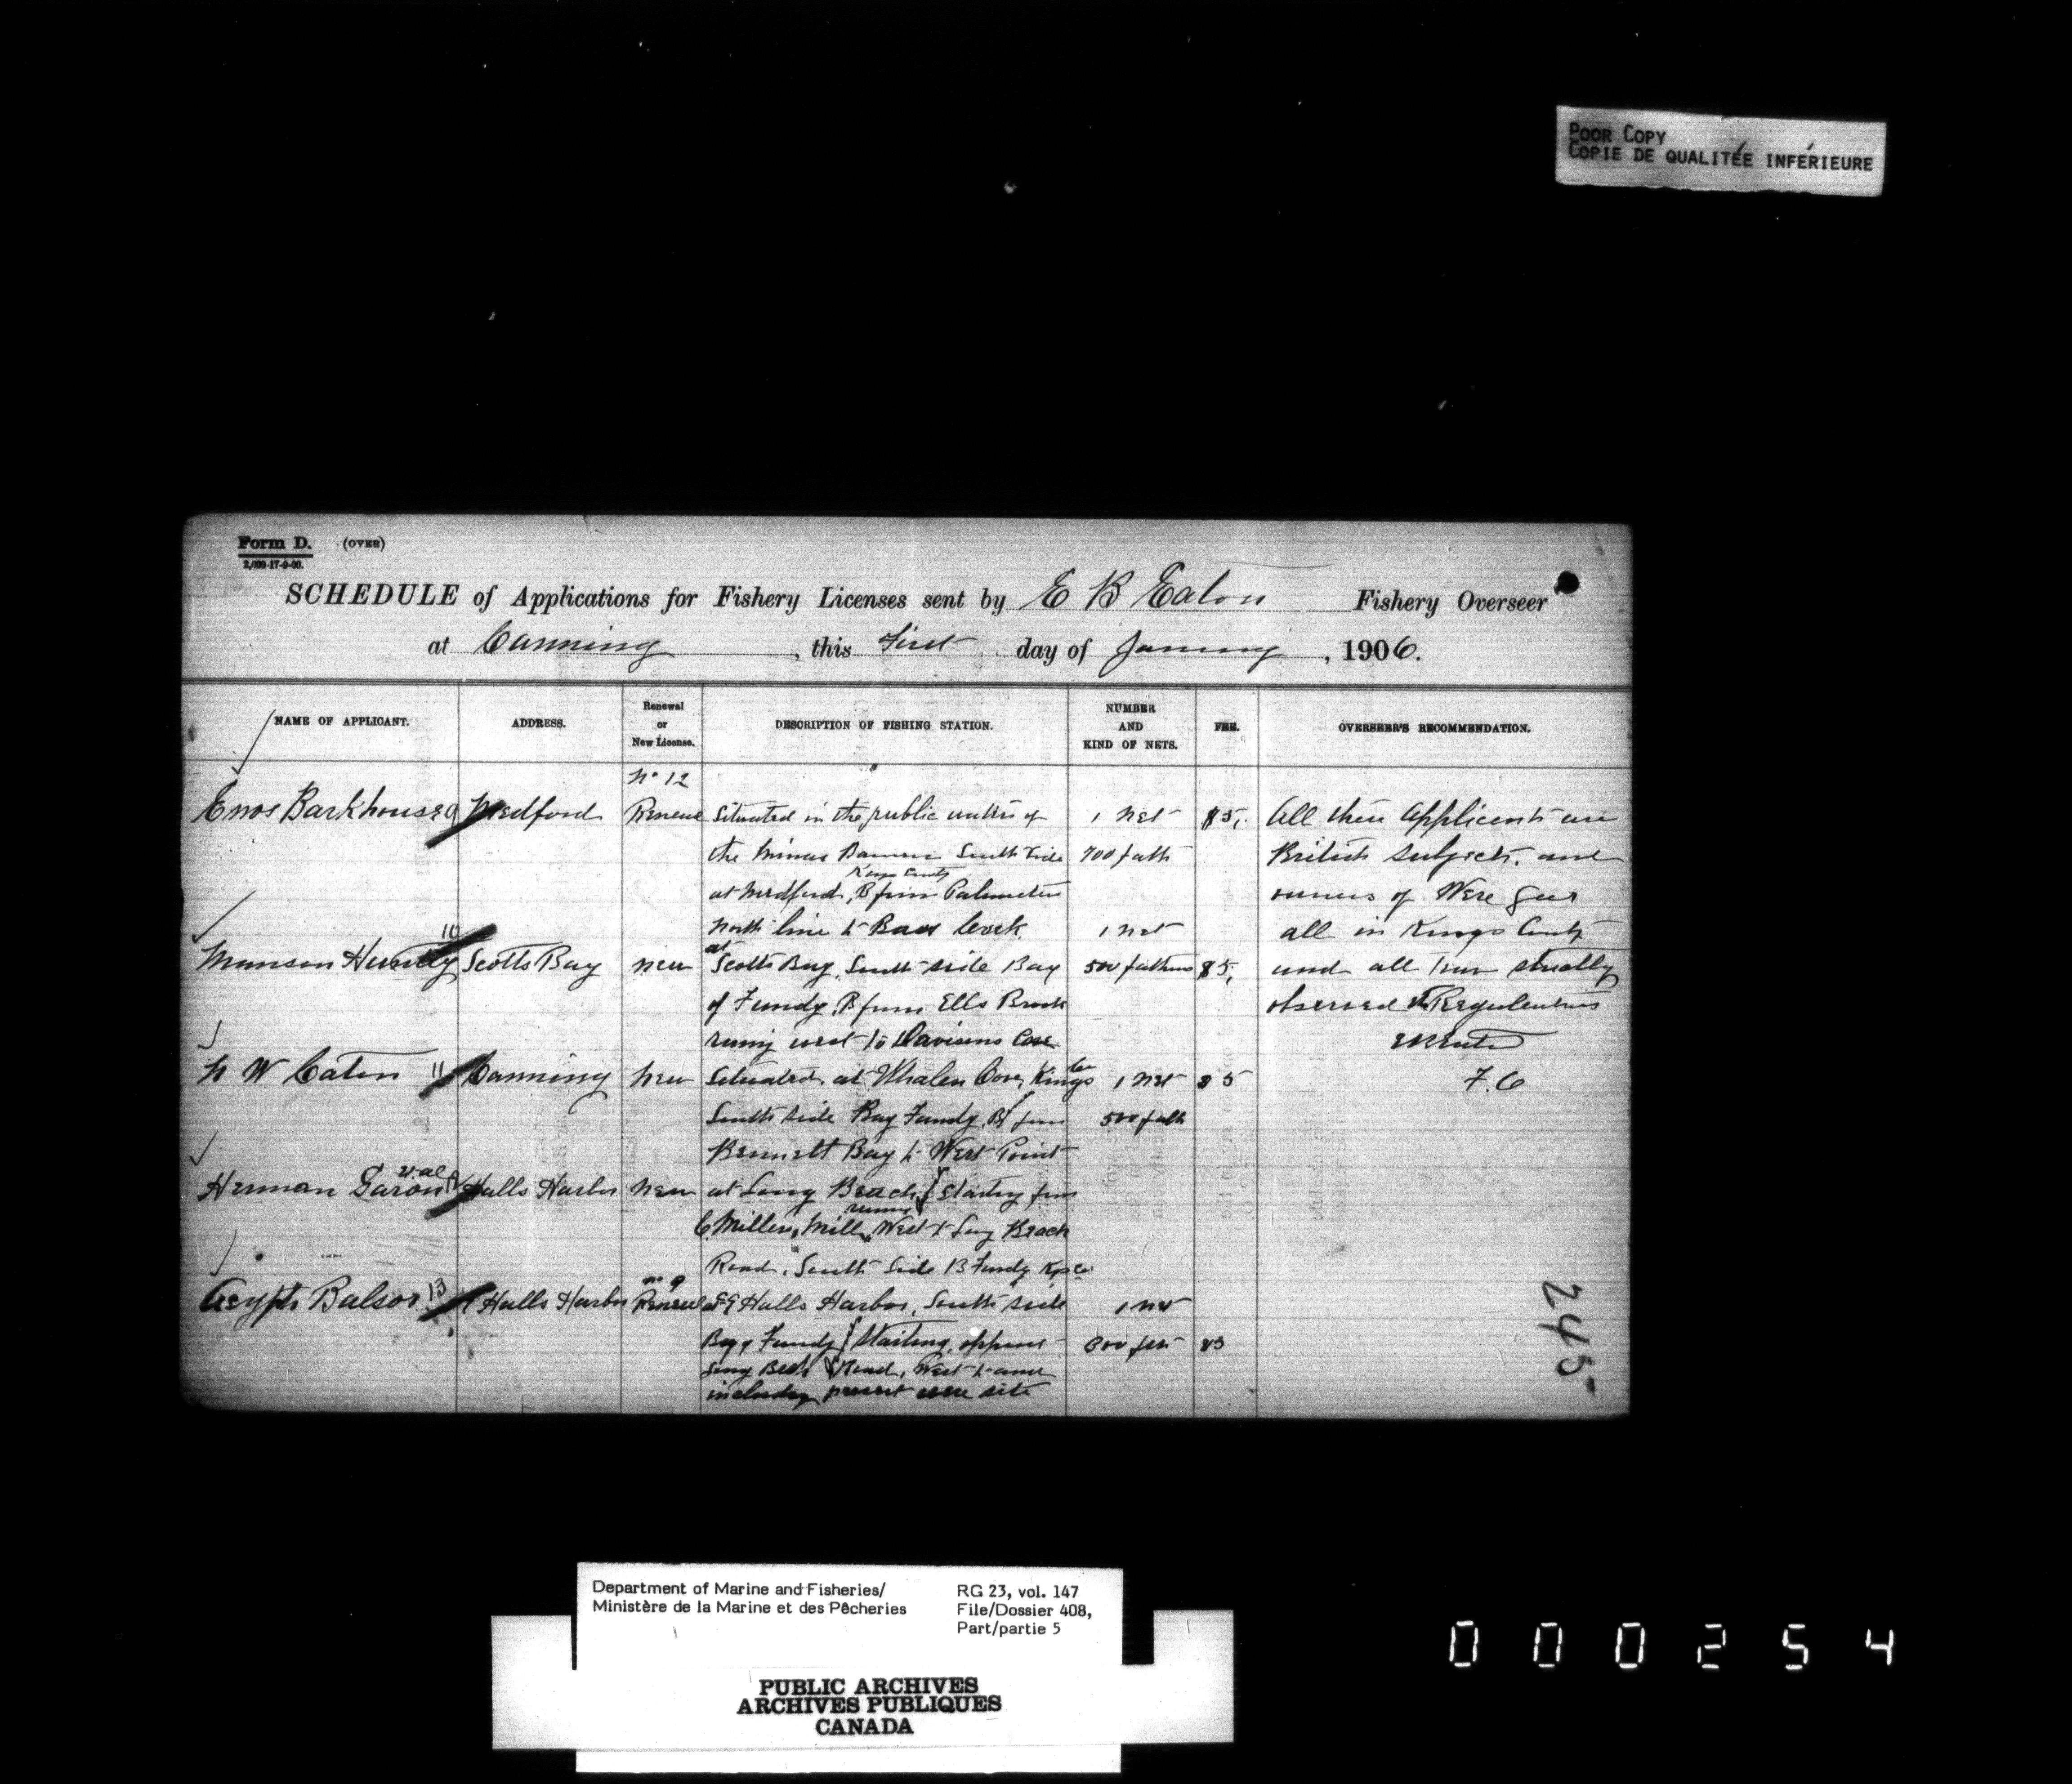 POOR COPY
COPIE DE QUALITÉE INFÉRIEURE
Form D. (OVER)
2,000-17-9-00.
SCHEDULE of Applications for Fishery Licenses sent by E B Eaton Fishery Overseer
at Canning, this First day of January, 1906.
NAME OF APPLICANT. ADDRESS. Renewal or New License. DESCRIPTION OF FISHING STATION. NUMBER AND KIND OF NETS. FEE. OVERSEER'S RECOMMENDATION.
No 12
Enos Barkhouse 9 Medford Renew Situated in the public waters of 1 Net $5, All these Applicants are
the Minas South side 700 fath British subjects, and
Kings County
at Medford, B from North line to Creek owners of Were Gear
1 net all in Kings County
Manson Huntly 10 Scotts Bay new at Scotts Bay, South side Bay 500 fathoms $5, and all have strictly
of Fundy, B from Ells Brook observed the Regulations
runing west to Davisons Cove
N W Eaton 11 Canning New Situated at Whalen Cove, Kings Co 1 net $5 F.O
South side Bay Fundy, B from 500 fath
Bennett Bay to West Point
Herman et al 12 Halls Harbor New at Long Beach starting from
C. Millers Mill, runing West to Long Beach
Road, South Side B Fundy
No 9
Balsor 13 Halls Harbor Renewel at Halls Harbor, South side 1 net
Bay Fundy Starting opposit 300 $5
Long Beach Road, West to and
including present were site
245
Department of Marine and Fisheries/
Ministère de la Marine et des Pêcheries
RG 23, vol. 147
File/Dossier 408,
Part/partie 5
PUBLIC ARCHIVES
ARCHIVES PUBLIQUES
CANADA
000254